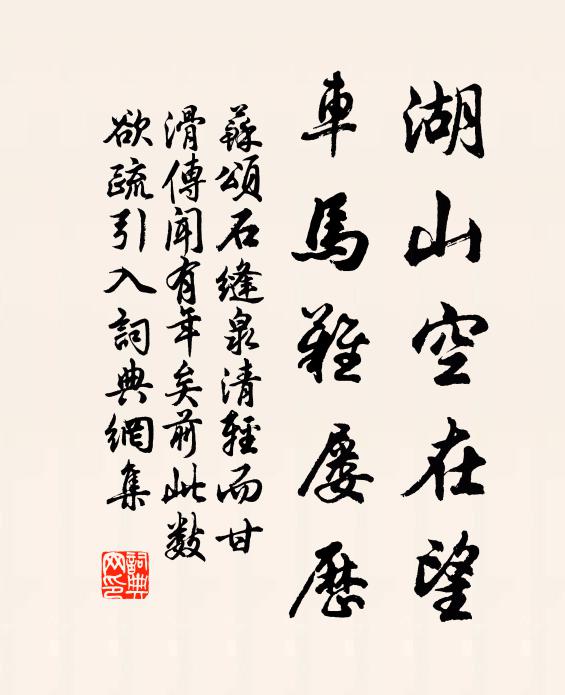 湖山空在望
車馬難屡歷
蘇頌石縫泉清輕而甘
滑傳聞有年矣前此数
欲疏引入詞典網集
詞典
网印